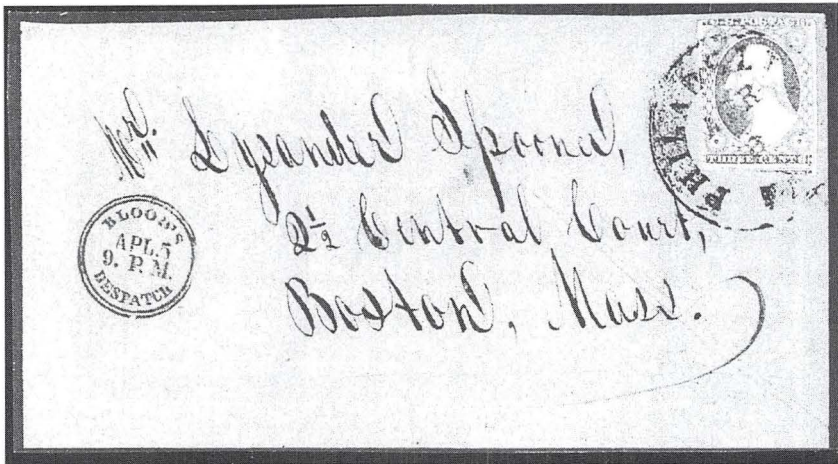 Mr. Lysander Spooner,
2½ Central Court,
Boston, Mass.
BLOOD'S
APL. 5
9. P. M.
DESPATCH
PHILADEL
THREE CENTS